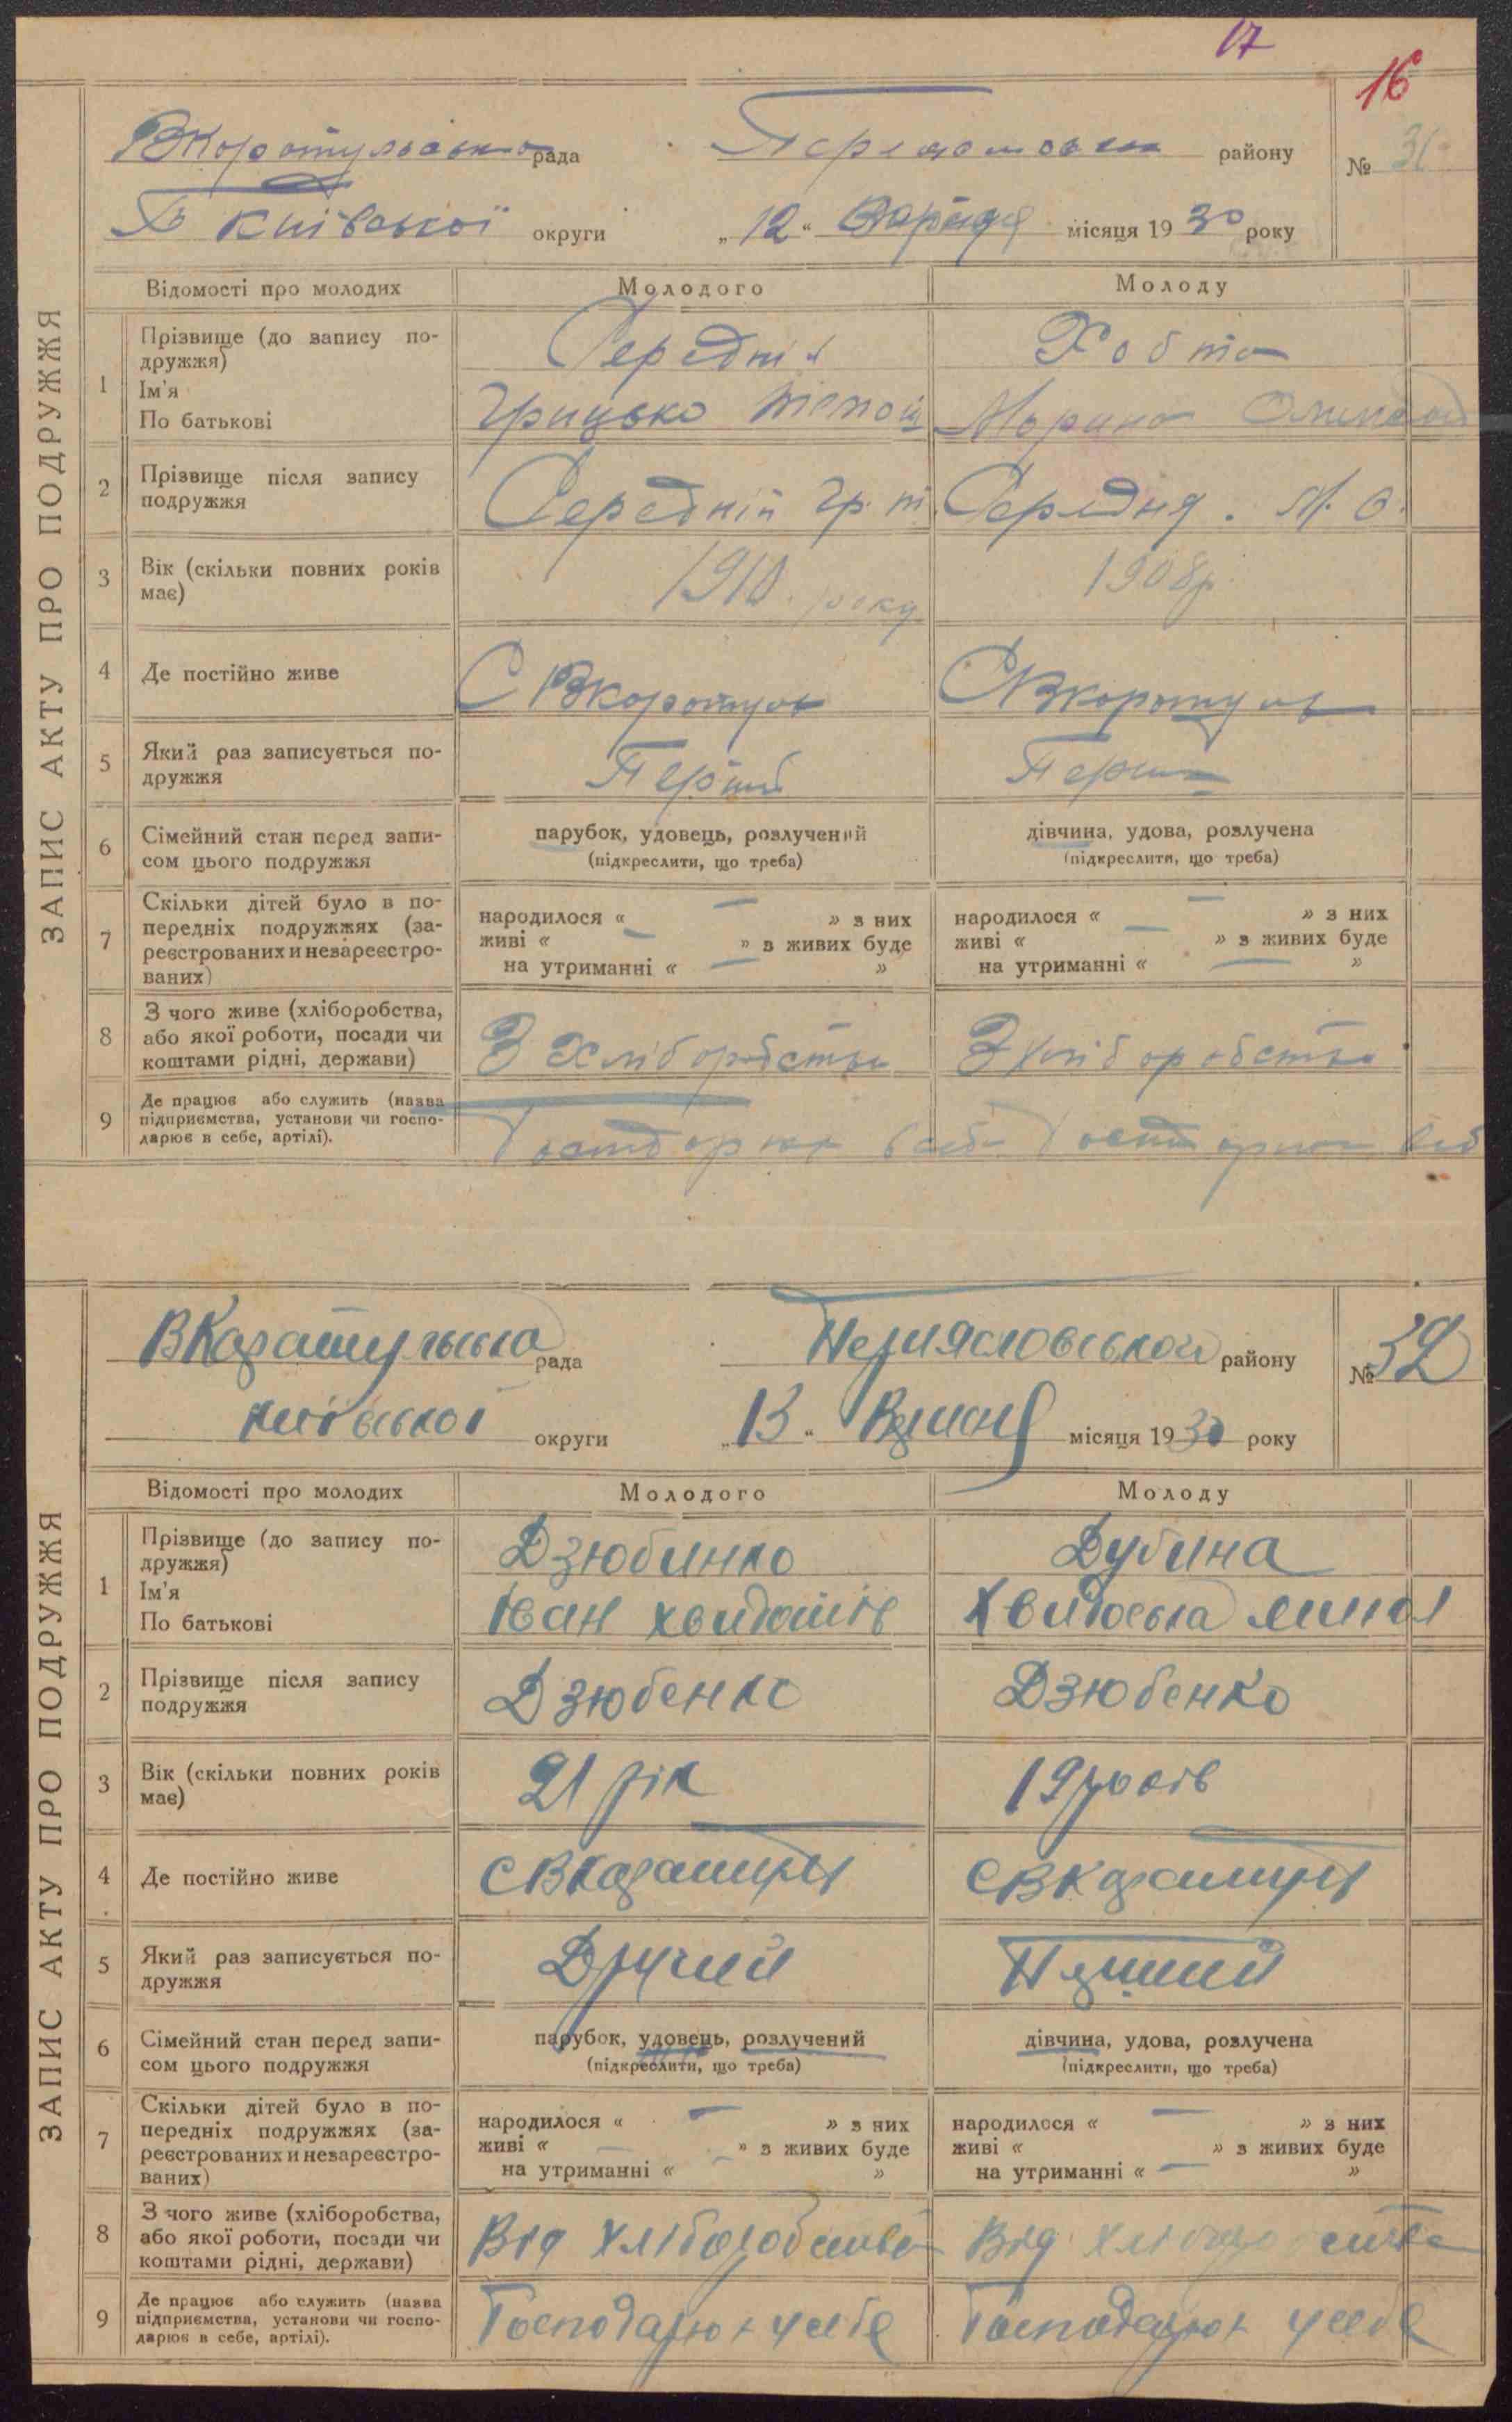 17
16
ЗАПИС АКТУ ПРО ПОДРУЖЖЯ
рада району № 31
Київської округи „12“ місяця 1930 року
Відомості про молодих Молодого Молоду
1 Прізвище (до запису по-
дружжя)
Ім'я
По батькові
Середній
Грицько
Марина
2 Прізвище після запису
подружжя
Середній Гр. Т. Середня. М. О.
3 Вік (скільки повних років
має)
1910. року 1908р
4 Де постійно живе
С ВКоротуль С ВКоротуль
5 Який раз записується по-
дружжя
Перший Перший
6 Сімейний стан перед запи-
сом цього подружжя
парубок, удовець, розлучений
(підкреслити, що треба)
дівчина, удова, розлучена
(підкреслити, що треба)
7 Скільки дітей було в по-
передніх подружжях (за-
реєстрованих и незареєстро-
ваних)
народилося « — » з них
живі « — » з живих буде
на утриманні « — »
народилося « — » з них
живі « — » з живих буде
на утриманні « — »
8 З чого живе (хліборобства,
або якої роботи, посади чи
коштами рідні, держави)
З Хліборобства З Хліборобства
9 Де працює або служить (назва
підприємства, установи чи госпо-
дарює в себе, артілі).
ЗАПИС АКТУ ПРО ПОДРУЖЖЯ
рада району № 32
київської округи „13“ місяця 1930 року
Відомості про молодих Молодого Молоду
1 Прізвище (до запису по-
дружжя)
Ім'я
По батькові
Дзюбинко Дубина
Іван
2 Прізвище після запису
подружжя
Дзюбенко Дзюбенко
3 Вік (скільки повних років
має)
21 рік 19 років
4 Де постійно живе
5 Який раз записується по-
дружжя
Другий Перший
6 Сімейний стан перед запи-
сом цього подружжя
парубок, удовець, розлучений
(підкреслити, що треба)
дівчина, удова, розлучена
(підкреслити, що треба)
7 Скільки дітей було в по-
передніх подружжях (за-
реєстрованих и незареєстро-
ваних)
народилося « — » з них
живі « — » з живих буде
на утриманні « — »
народилося « — » з них
живі « » з живих буде
на утриманні « — »
8 З чого живе (хліборобства,
або якої роботи, посади чи
коштами рідні, держави)
Від Хліборобства Від Хліборобства
9 Де працює або служить (назва
підприємства, установи чи госпо-
дарює в себе, артілі).
Господарює у себе Господарює у себе